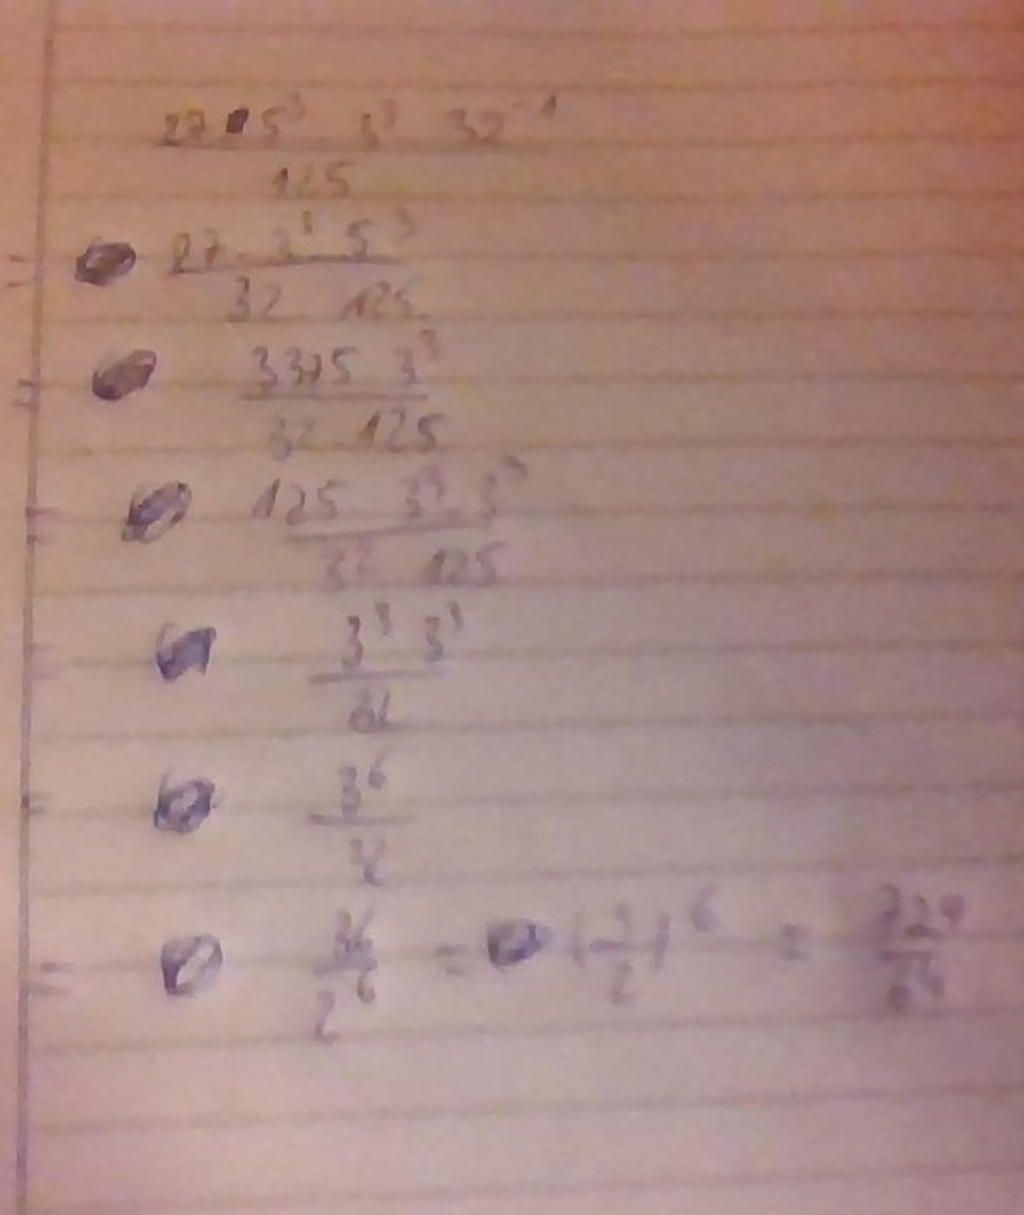 27 · 5³ 3³ 32⁻¹
125
= 27 · 3³ 5³
32 125
= 3375 3³
32 125
= 125 · 3³ · 3³
32 125
= 3³ 3³
= 3⁶
= 3⁶ / 2⁶ = ( / 2)⁶ = 729 / 64